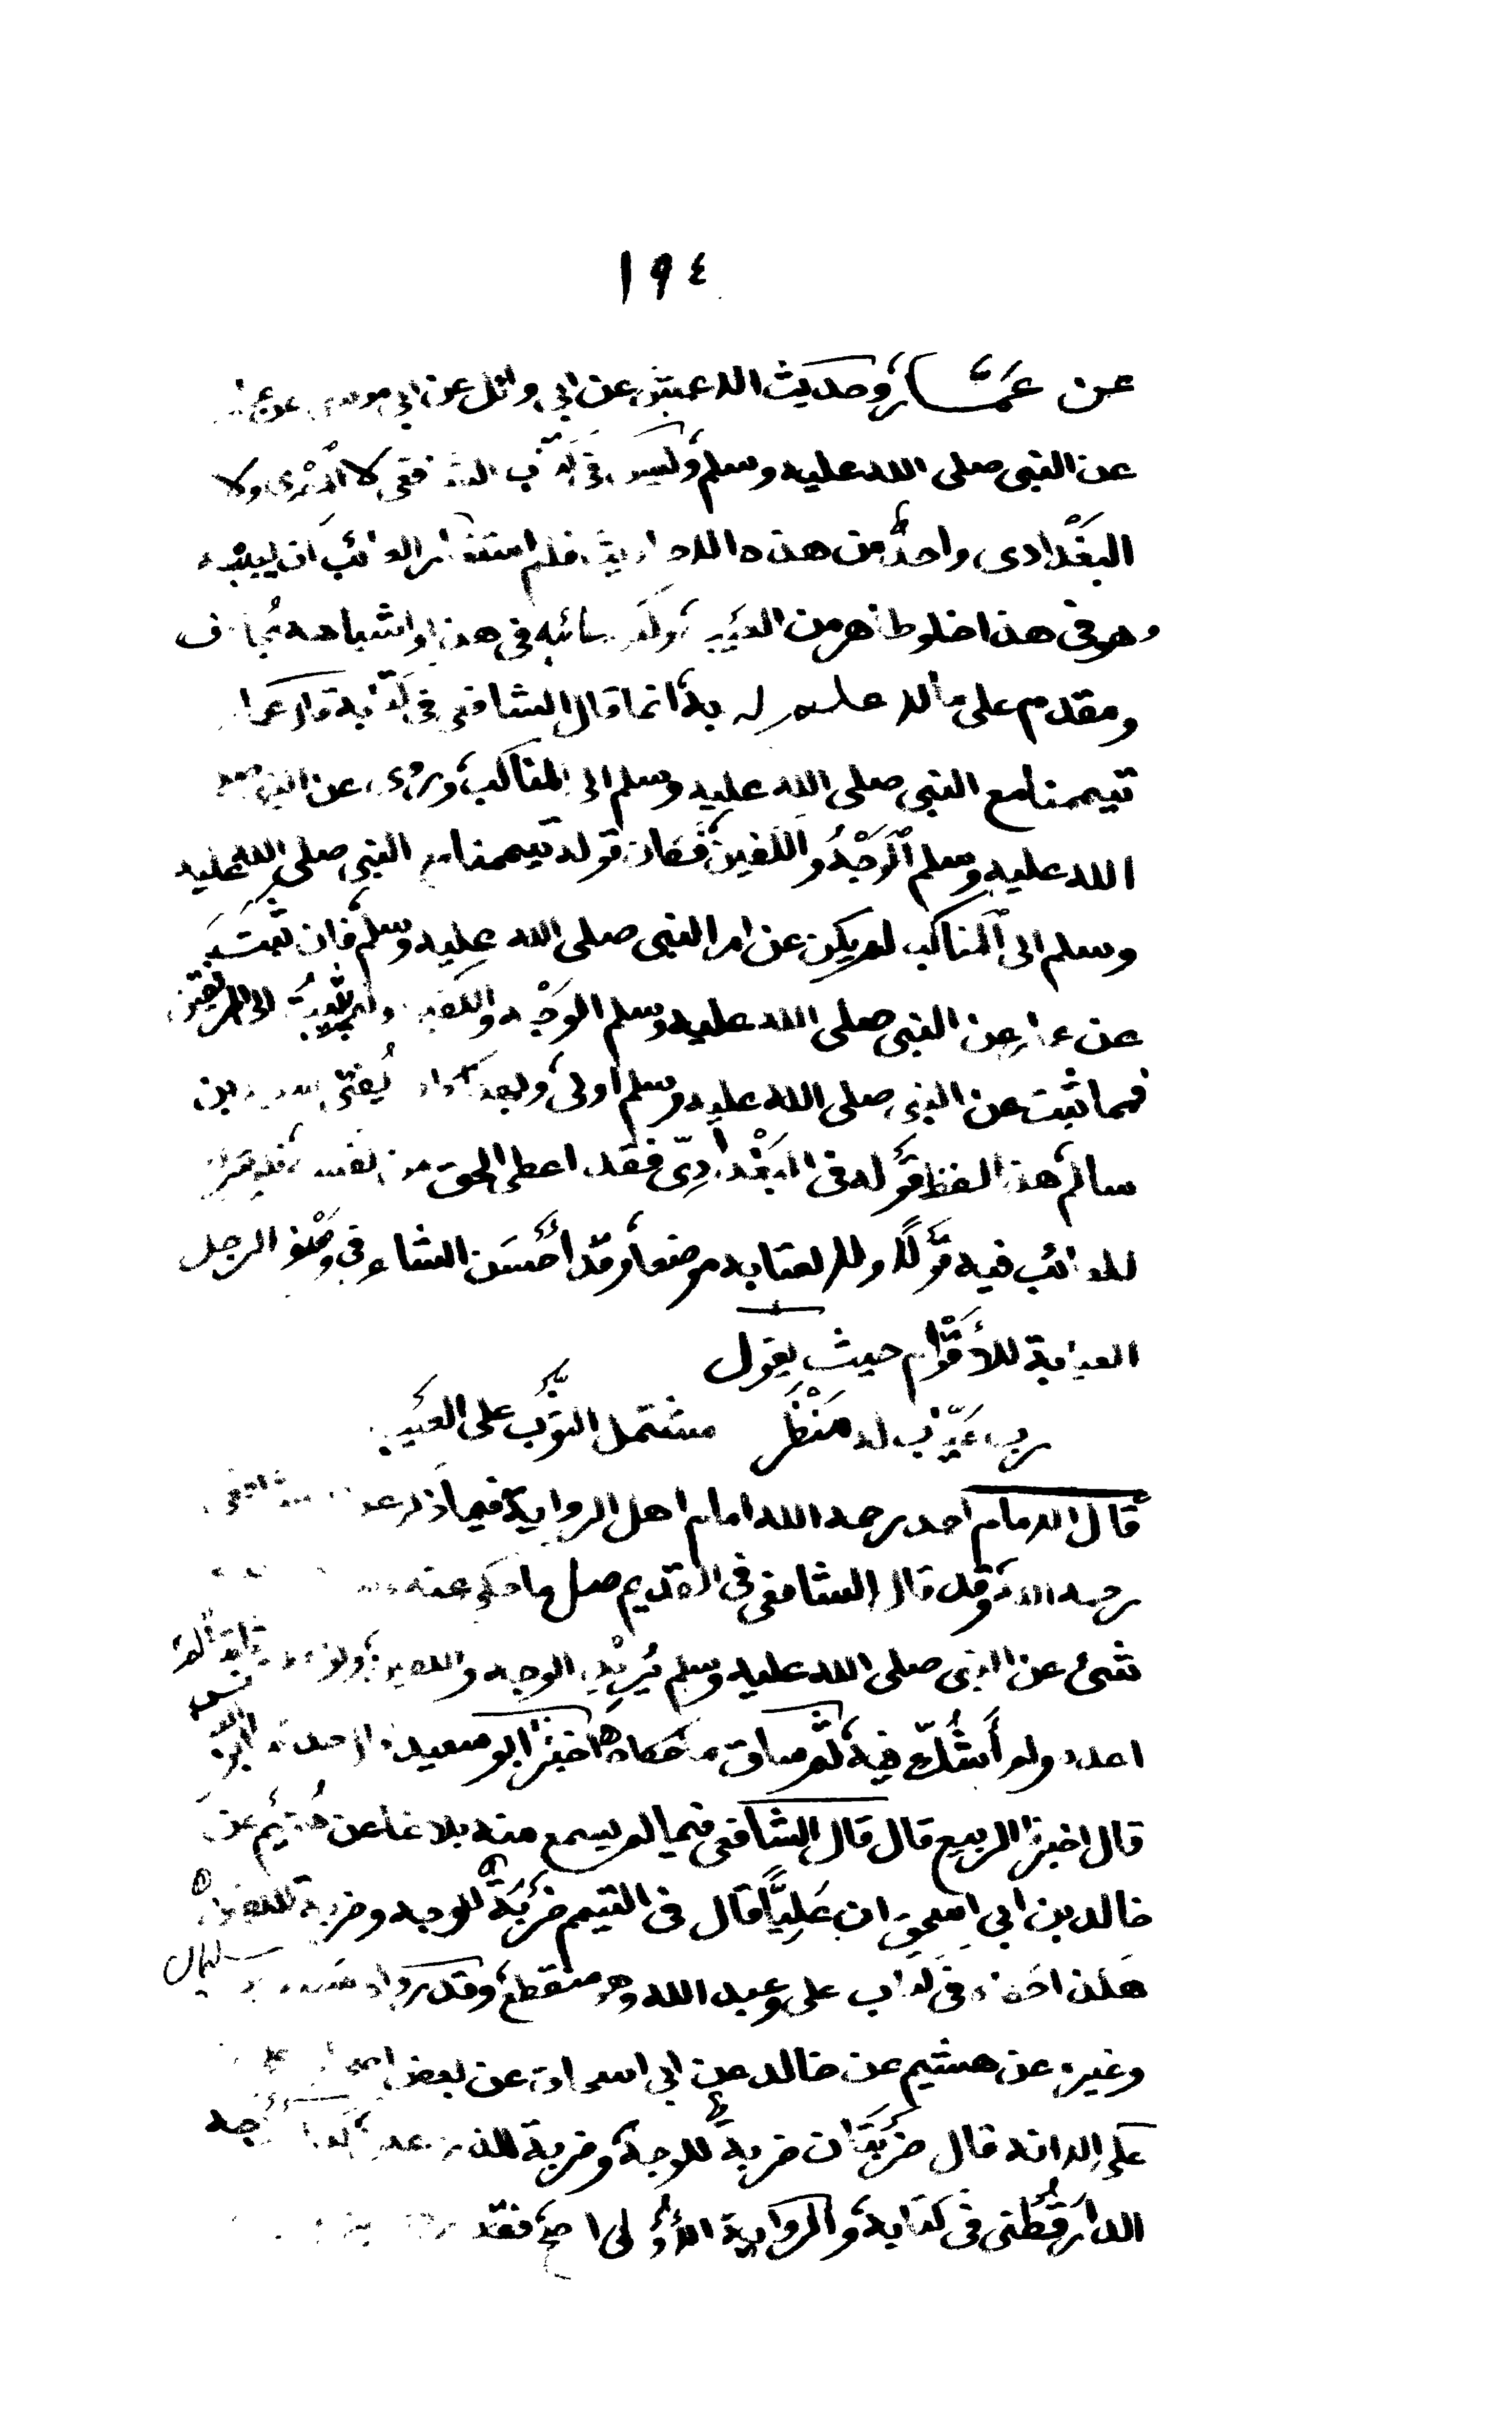 ١٩٤
عن عَمَّار، وحديث الاعمش عن ابي وائل عن ابي موسى عن عمار
عن النبي صلى الله عليه وسلم، وليس في كتاب الشافعي لا المصري ولا
البَغْدادى واحدٌ من هذه الاحاديث فلم العائب ان
وهو في هذا ظاهر من العَيب، ولكنه في هذا واشباهه
ومقدم على ما لا به، انما قال الشافعي في كتابه قال عمار
تيممنا مع النبي صلى الله عليه وسلم الى المناكب، وروى عن النبي صلى
الله عليه وسلم الوَجْهُ والكفين، فكان قوله تيممنا مع النبي صلى الله عليه
وسلم الى المناكب لم يكن عن امر النبي صلى الله عليه وسلم، فان ثبت
عن عمار عن النبي صلى الله عليه وسلم الوَجْه والكفين ولم يثبت الى المرفقين
فما ثبت عن النبي صلى الله عليه وسلم اولى، وبهذا كان يُفتى سعيد بن
سالم، هذا لفظ قَوْله في البَغْدادِيّ فقد اعطى الحق من نفسه، فلم يترك
للعائب فيه قَوْلًا ولا لعتابه موضعا، وقد أَحْسَن الشاعر في وَصْف الرجل
العيابة للأَقْوام حيث يقول
رب عَيَّاب له مَنْظَر مشتمل الثَوْب على العَيب
قال الامام احمد رحمه الله امام اهل الرواية فيما ذكر عن الشافعي
رحمه الله، وقد قال الشافعي في القديم ما حكى عنه
شئ عن النبي صلى الله عليه وسلم يُرِيْد الوجه والكفين، ولو
اعده ولم أَشُكّ فيه، ثم ساق ما حكاه اخبرنا ابو سعيد نا ابو العباس
قال اخبرنا الربيع قال قال الشافعي فيما لم يسمع منه بلاغا عن هُشَيْم عن
خالد بن ابي اسحق ان عَلِيًّا قال في التيمم ضَرْبَةٌ للوجه وضربة للكفين
هكذا في كتاب علي وعبد الله وهو منقطع، وقد رواه سليمان
وغيره عن هشيم عن خالد عن ابي اسحاق عن بعض اصحاب علي
علي انه قال ضَرْبَتَان ضربةٌ للوجه، وضربة للذراعين،
الدارَقُطْنى في كتابه، والرواية الأُوْلى اصح، فقد